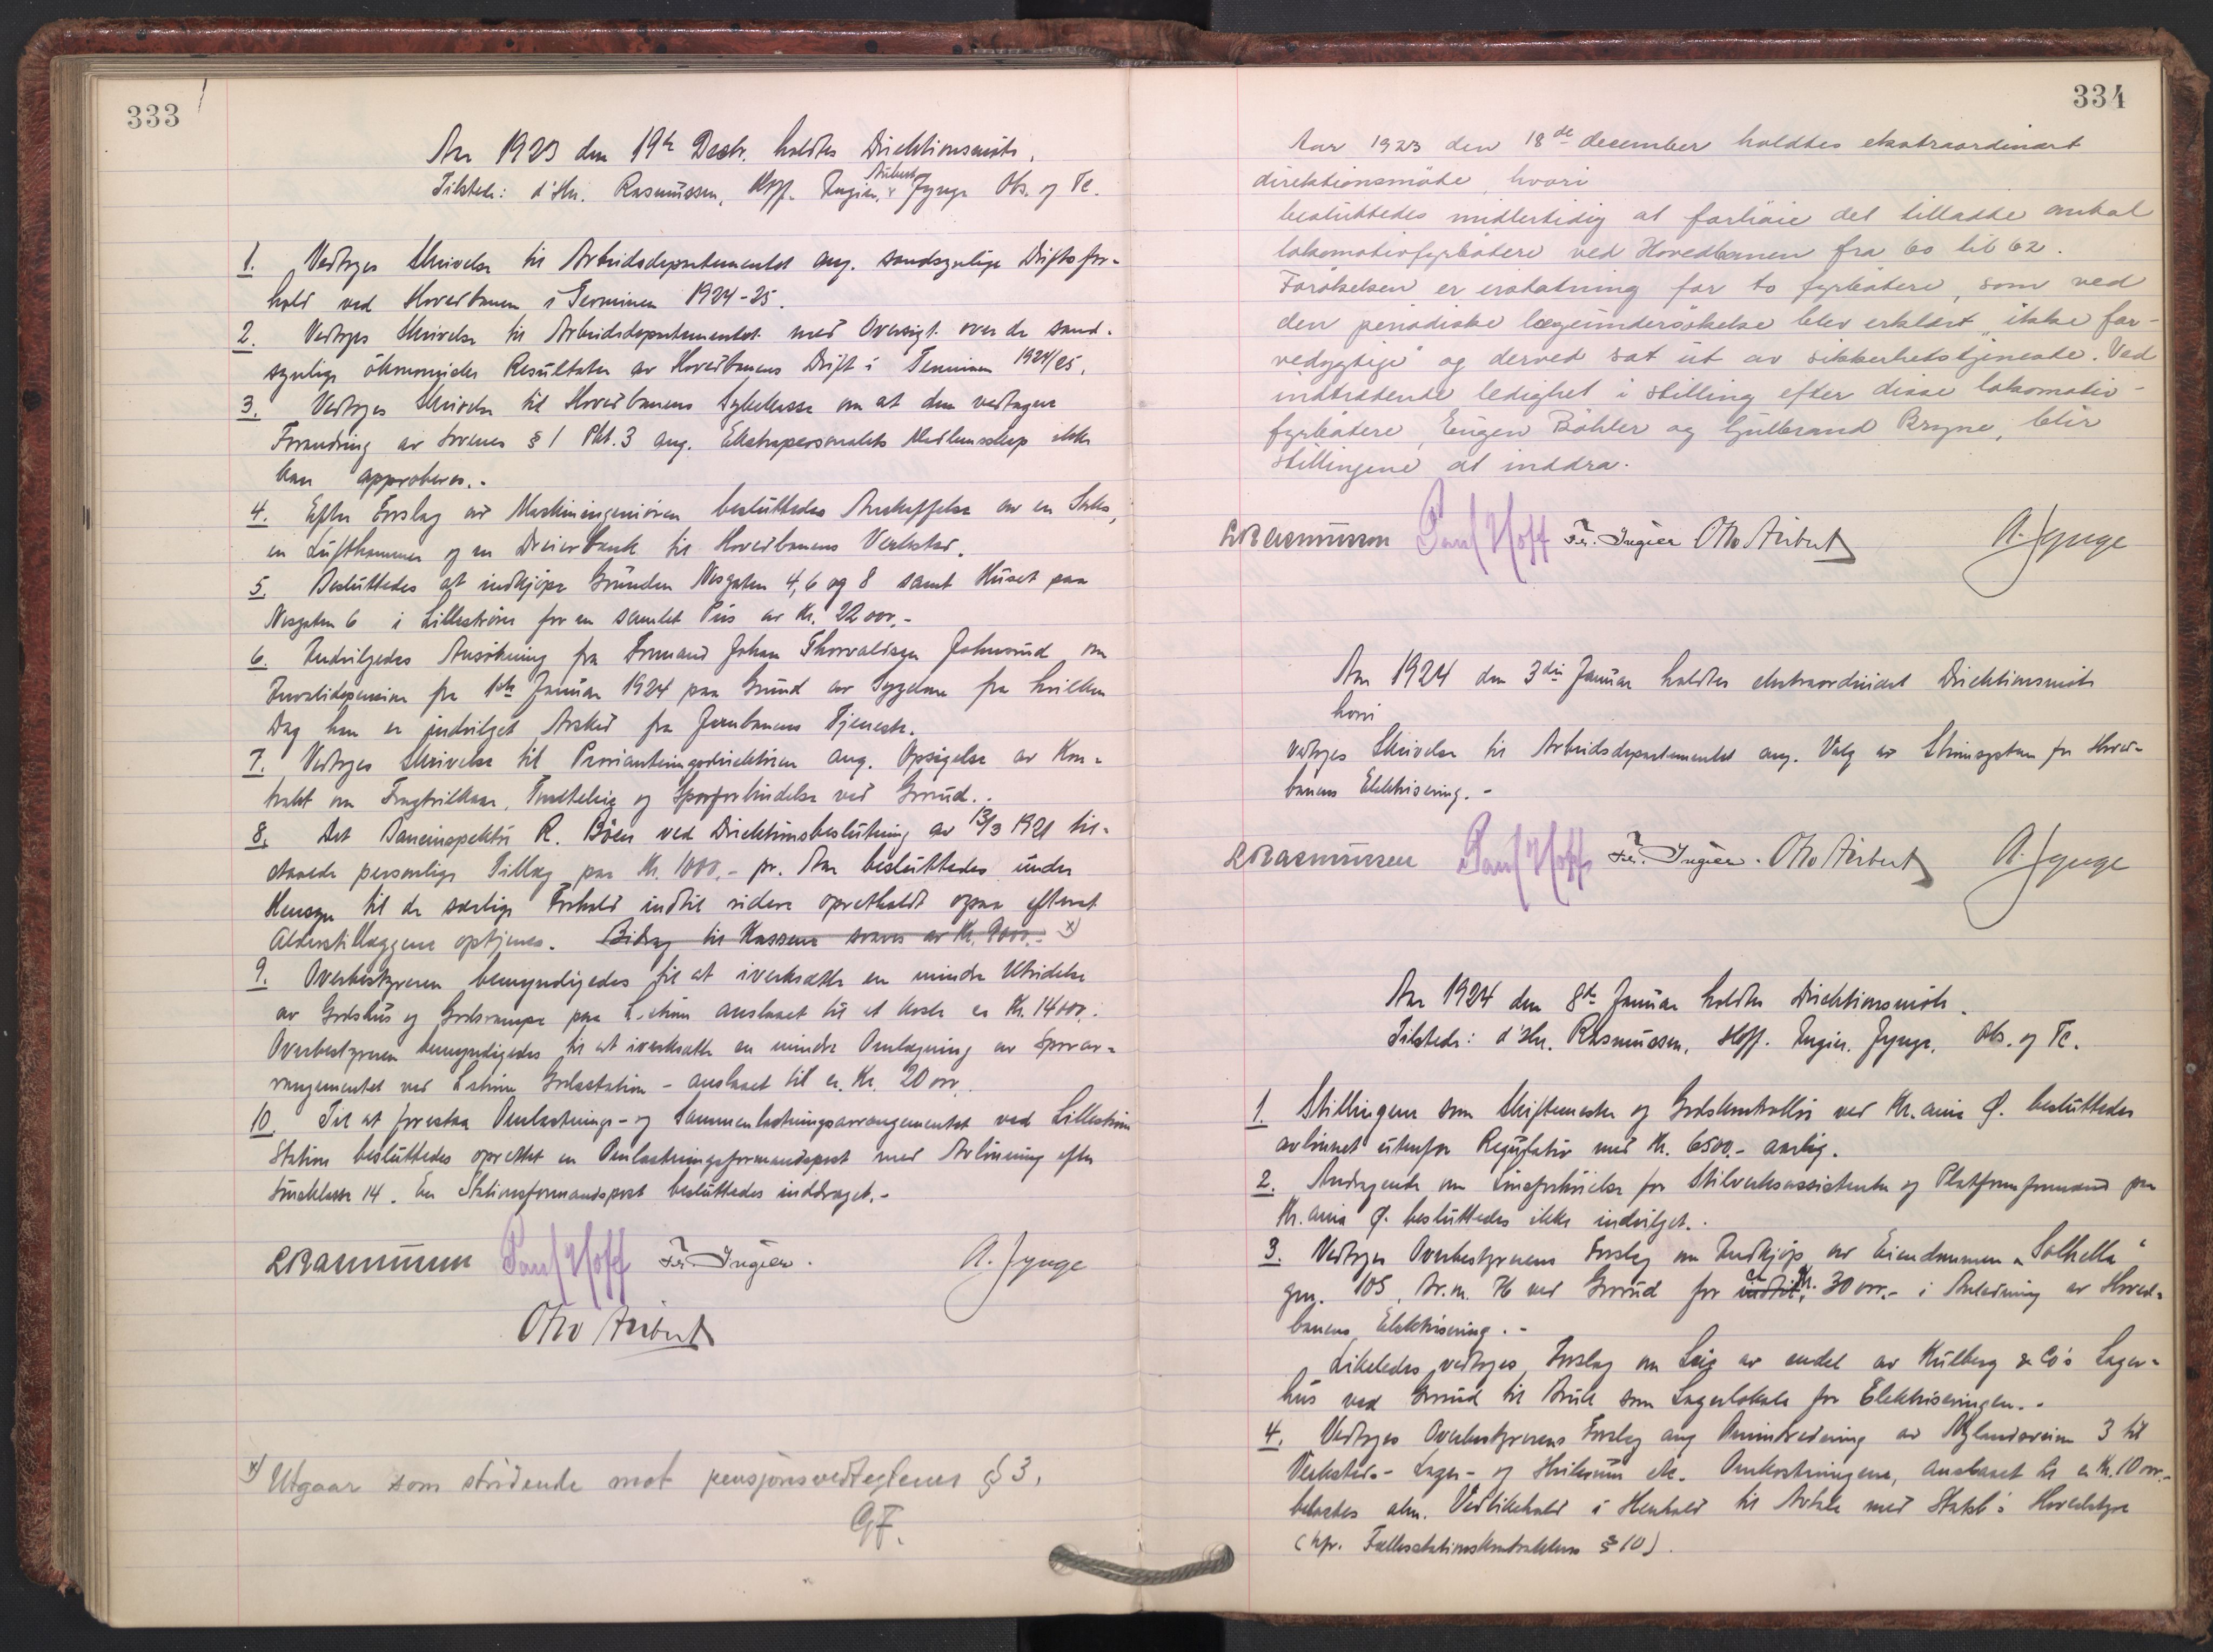 333
Aar 1923 den 19de Decbr. holdtes Direktionsmøte.
Tilstede: d'Hrr. Rasmussen, Hoff, Ingier, Aubert og Jynge. Obs. og Tc.
1. Vedtoges Skrivelse til Arbeidsdepartementet ang. sandsynlige Driftsfor-
hold ved Hovedbanen i Terminen 1924-25.
2. Vedtoges Skrivelse til Arbeidsdepartementet med Oversigt over de sand-
synlige økonomiske Resultater av Hovedbanens Drift i Terminen 1924/25.
3. Vedtoges Skrivelse til Hovedbanens Sykekasse om at den vedtagne
Forandring av Lovenes § 1 Pkt. 3 ang. Ekstrapersonalets Medlemsskap ikke
kan approberes.-
4. Efter Forslag av Maskiningeniøren besluttedes Anskaffelse av en Saks,
en Lufthammer og en Dreierbænk til Hovedbanens Verksted.
5. Besluttedes at indkjøpe Grunden Nesgaten 4, 6 og 8 samt Huset paa
Nesgaten 6 i Lillestrøm for en samlet Pris av Kr. 22000.-
6. Indvilgedes Ansøkning fra Formand Johan Thorvaldsen Johnsrud om
Invalidepension fra 1ste Januar 1924 paa Grund av Sygdom fra hvilken
Dag han er indvilget Avsked fra Jernbanens Tjeneste.
7. Vedtoges Skrivelse til Provianteringsdirektøren ang. Opsigelse av Kon-
trakt om Fragtvilkaar, Tomteleie og Sporforbindelse ved Grorud.-
8. Det Baneinspektør R. Bøen ved Direktionsbeslutning av 13/3 1921 til-
staaede personlige Tillæg paa Kr. 1000.- pr. Aar besluttedes under
Hensyn til de særlige Forhold indtil videre opretholdt ogsaa efterat
Alderstillæggene optjenes. Bidrag til Kassene svares av Kr. 9000.- x)
9. Overbestyreren bemyndigedes til at iverksætte en mindre Utvidelse
av Godshus og Godsrampe paa L.strøm anslaaet til at koste ca Kr. 14000.-
Overbestyreren bemyndigedes til at iverksætte en mindre Omlægning av Sporar-
rangementet ved L.strøm Godsstation - anslaaet til ca. Kr. 20000.
10. Til at forestaa Omlastnings- og Sammenlastningsarrangementet ved Lillestrøm
Station besluttedes oprettet en Omlastningsformandspost med Avlønning efter
Lønsklasse 14. En Stationsformandspost besluttedes inddraget.-
LRasmussen Paul Hoff Fr. Ingier. A. Jynge
Otto Aubert
x) Utgaar som stridende mot pensjonsvedtegtenes § 3.
GF.
334
Aar 1923 den 18de december holdtes ekstraordinært
direktionsmøte, hvori
besluttedes midlertidig at forhøie det tilladte antal
lokomotivfyrbøtere ved Hovedbanen fra 60 til 62.
Forøkelsen er erstatning for to fyrbøtere, som ved
den periodiske lægeundersøkelse blev erklært „ikke far-
vedygtige" og derved sat ut av sikkerhetstjeneste. Ved
indtrædende ledighet i stilling efter disse lokomotiv-
fyrbøtere, Eugen Bøhler og Gulbrand Bryne, blir
stillingene at inddra.
LRasmussen Paul Hoff Fr. Ingier Otto Aubert A. Jynge
Aar 1924 den 3die Januar holdtes ekstraordinært Direktionsmøte
hvori
vedtoges Skrivelse til Arbeidsdepartementet ang. Valg av Strømsystem for Hoved-
banens Elektrisering.-
LRasmussen Paul Hoff Fr. Ingier. Otto Aubert A. Jynge
Aar 1924 den 8de Januar holdtes Direktionsmøte.
Tilstede: d'Hrr. Rasmussen, Hoff. Ingier. Jynge. Obs. og Tc.
1. Stillingen som Skiftemester og Godskontrollør ved Kr.ania Ø. besluttedes
avlønnet utenfor Regulativ med Kr. 6500.- aarlig.
2. Andragende om Lønsforhøielse for Stilverksassistenter og Platformformænd paa
Kr.ania Ø. besluttedes ikke indvilget.-
3. Vedtoges Overbestyrerens Forslag om Indkjøp av Eiendommen „Solhella"
gnr. 105, br.nr. 76 ved Grorud for indtil ca Kr. 30000.- i Anledning av Hoved-
banens Elektrisering.-
Likeledes vedtoges Forslag om Leie av endel av Kulberg & Co's Lager-
hus ved Grorud til Bruk som Lagerlokale for Elektriseringen.-
4. Vedtoges Overbestyrerens Forslag ang Ominnredning av Nylandsveien 3 til
Verksteds- Lager- og Hvilerum etc. Omkostningene, anslaaet til ca Kr. 10000.-
belastes alm. Vedlikehold i Henhold til Avtale med Statsb's Hovedstyre
(kfr. Fællesstationskontrakten § 10).